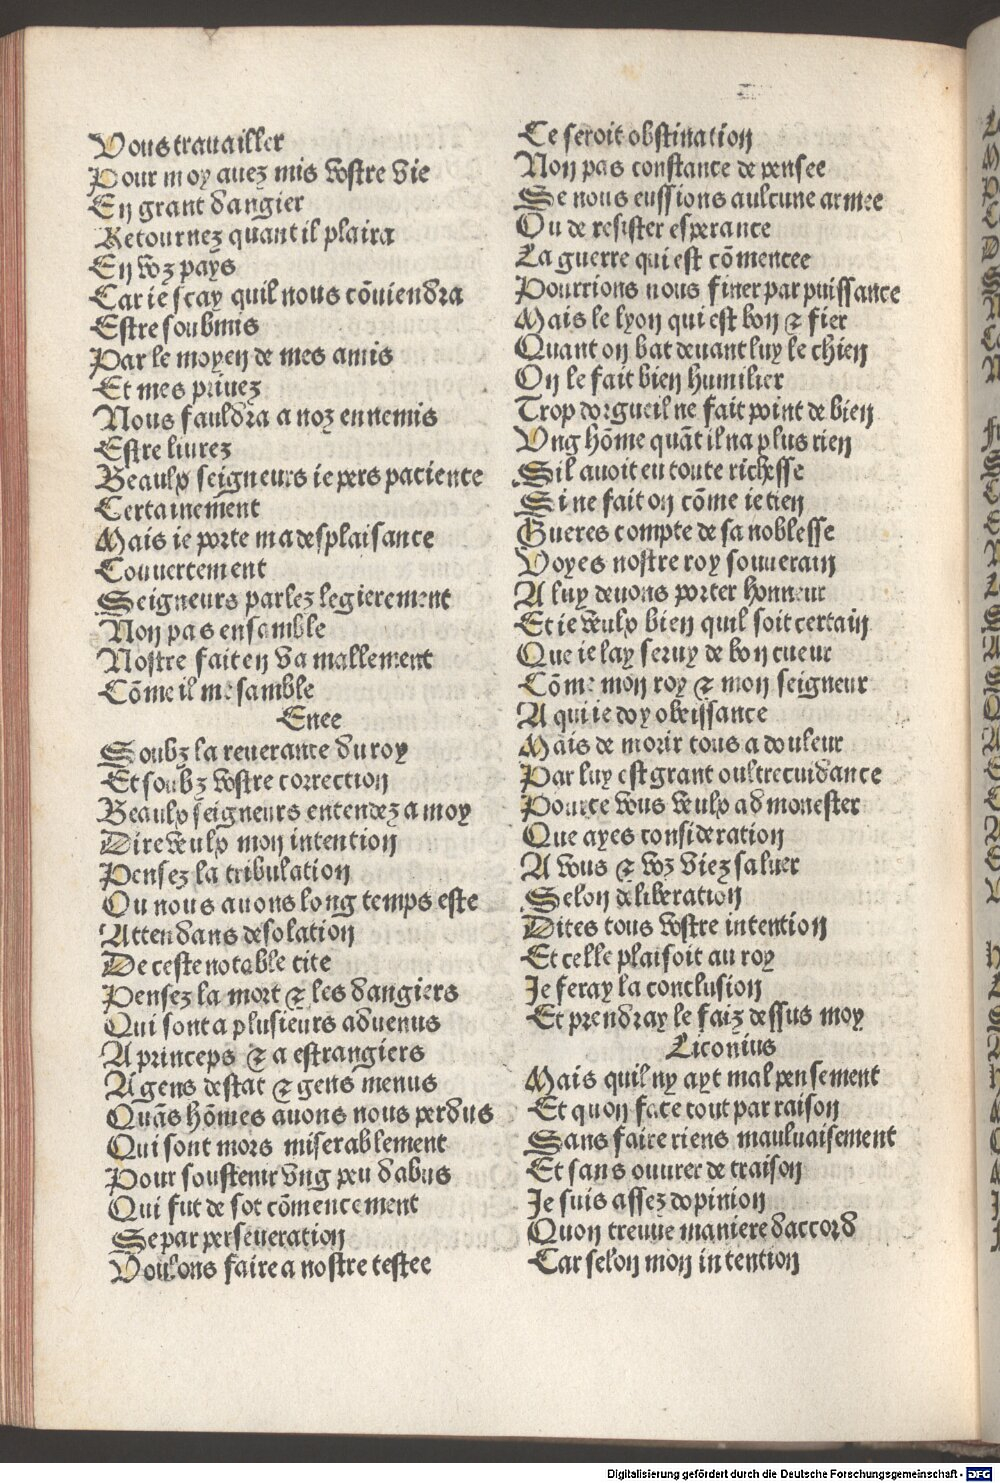 Vous trauailler
Pour moy auez mis vostre vie
En grant dangier
Retournez quant il plaira
En voz pays
Car ie scay quil nous cōuiendra
Estre soubmis
Par le moyen de mes amis
Et mes priuez
Nous fauldra a noz ennemis
Estre liurez
Beaulx seigneurs ie pers pacience
Certainement
Mais ie porte ma desplaisance
Couuertement
Seigneurs parlez legierement
Non pas ensamble
Nostre fait en va mallement
Cōme il me samble
Enee
Soubz la reuerance du roy
Et soubz vostre correction
Beaulx seigneurs entendez a moy
Dire veulx mon intention
Pensez la tribulation
Ou nous auons long temps este
Attendans desolation
De ceste notable cite
Pensez la mort & les dangiers
Qui sont a plusieurs aduenus
A princeps & a estrangiers
A gens destat & gens menus
Quās hōmes auons nous perdus
Qui sont mors miserablement
Pour soustenir vng peu dabus
Qui fut de sot cōmencement
Se par perseueration
Voulons faire a nostre testee
Ce seroit obstination
Non pas constance de pensee
Se nous eussions aulcune armee
Ou de resister esperance
La guerre qui est cōmencee
Pourrions nous finer par puissance
Mais le lyon qui est bon & fier
Quant on bat deuant luy le chien
On le fait bien humilier
Trop dorgueil ne fait point de bien
Vng hōme quāt il na plus rien
Sil auoit eu toute richesse
Si ne fait on cōme ie tien
Gueres compte de sa noblesse
Voyes nostre roy souuerain
A luy deuons porter honneur
Et ie veulx bien quil soit certain
Que ie lay seruy de bon cueur
Cōme mon roy & mon seigneur
A qui ie doy obeissance
Mais de morir tous a douleur
Par luy est grant oultrecuidance
Pource vous veulx admonester
Que ayes consideration
A vous & voz viez saluer
Selon deliberation
Dites tous vostre intention
Et celle plaisoit au roy
Je feray la conclusion
Et prendray le faiz dessus moy
Liconius
Mais quil ny ayt mal pensement
Et quon face tout par raison
Sans faire riens mauluaisement
Et sans ouurer de traison
Je suis assez dopinion
Quon treuue maniere daccord
Car selon mon intention
Digitalisierung gefördert durch die Deutsche Forschungsgemeinschaft - DFG